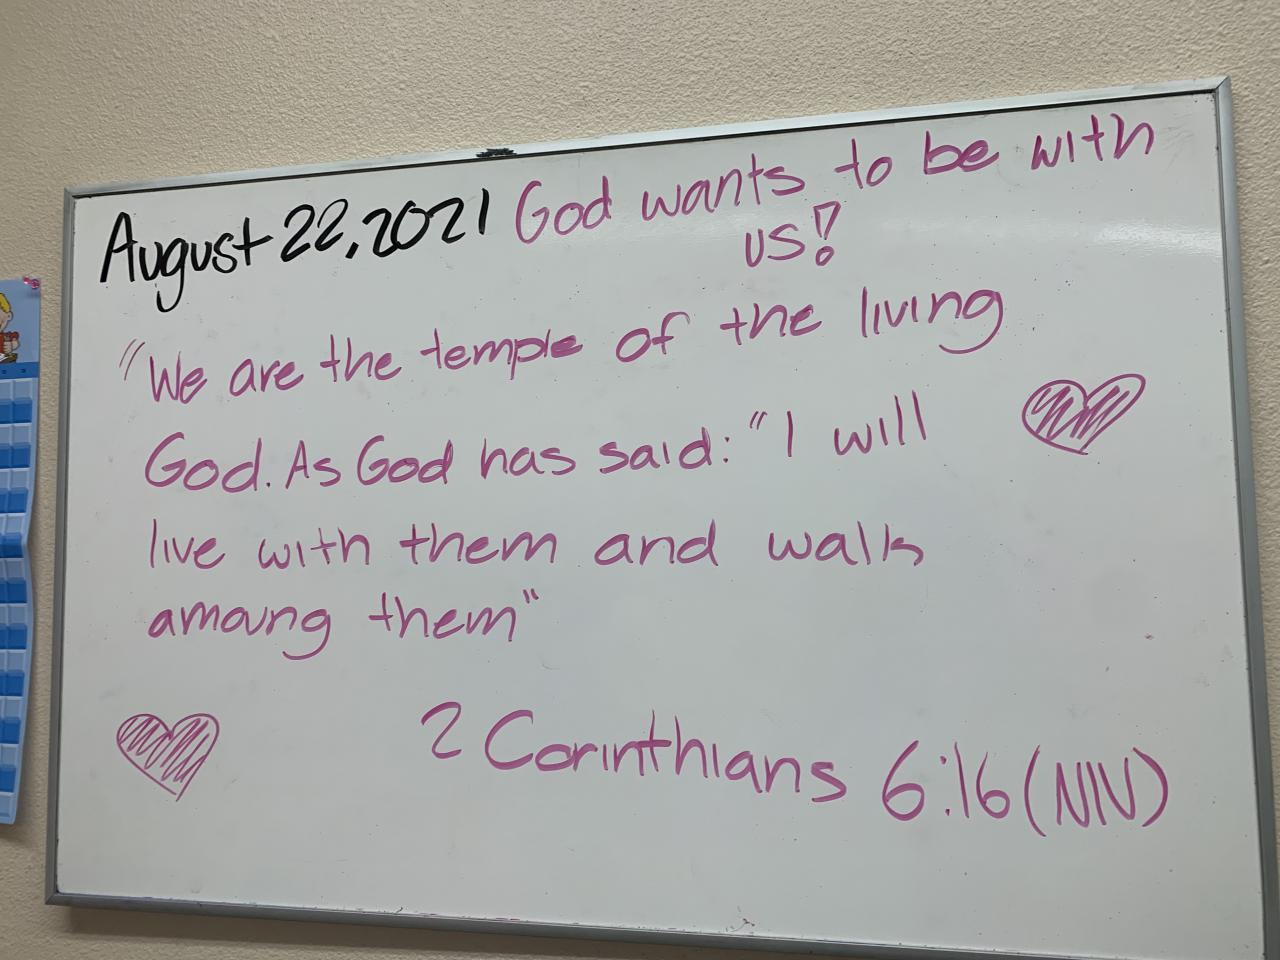 August 22, 2021 God wants to be with
us!
"We are the temple of the living
God. As God has said: "I will
live with them and walk
amoung them"
2 Corinthians 6:16 (NIV)